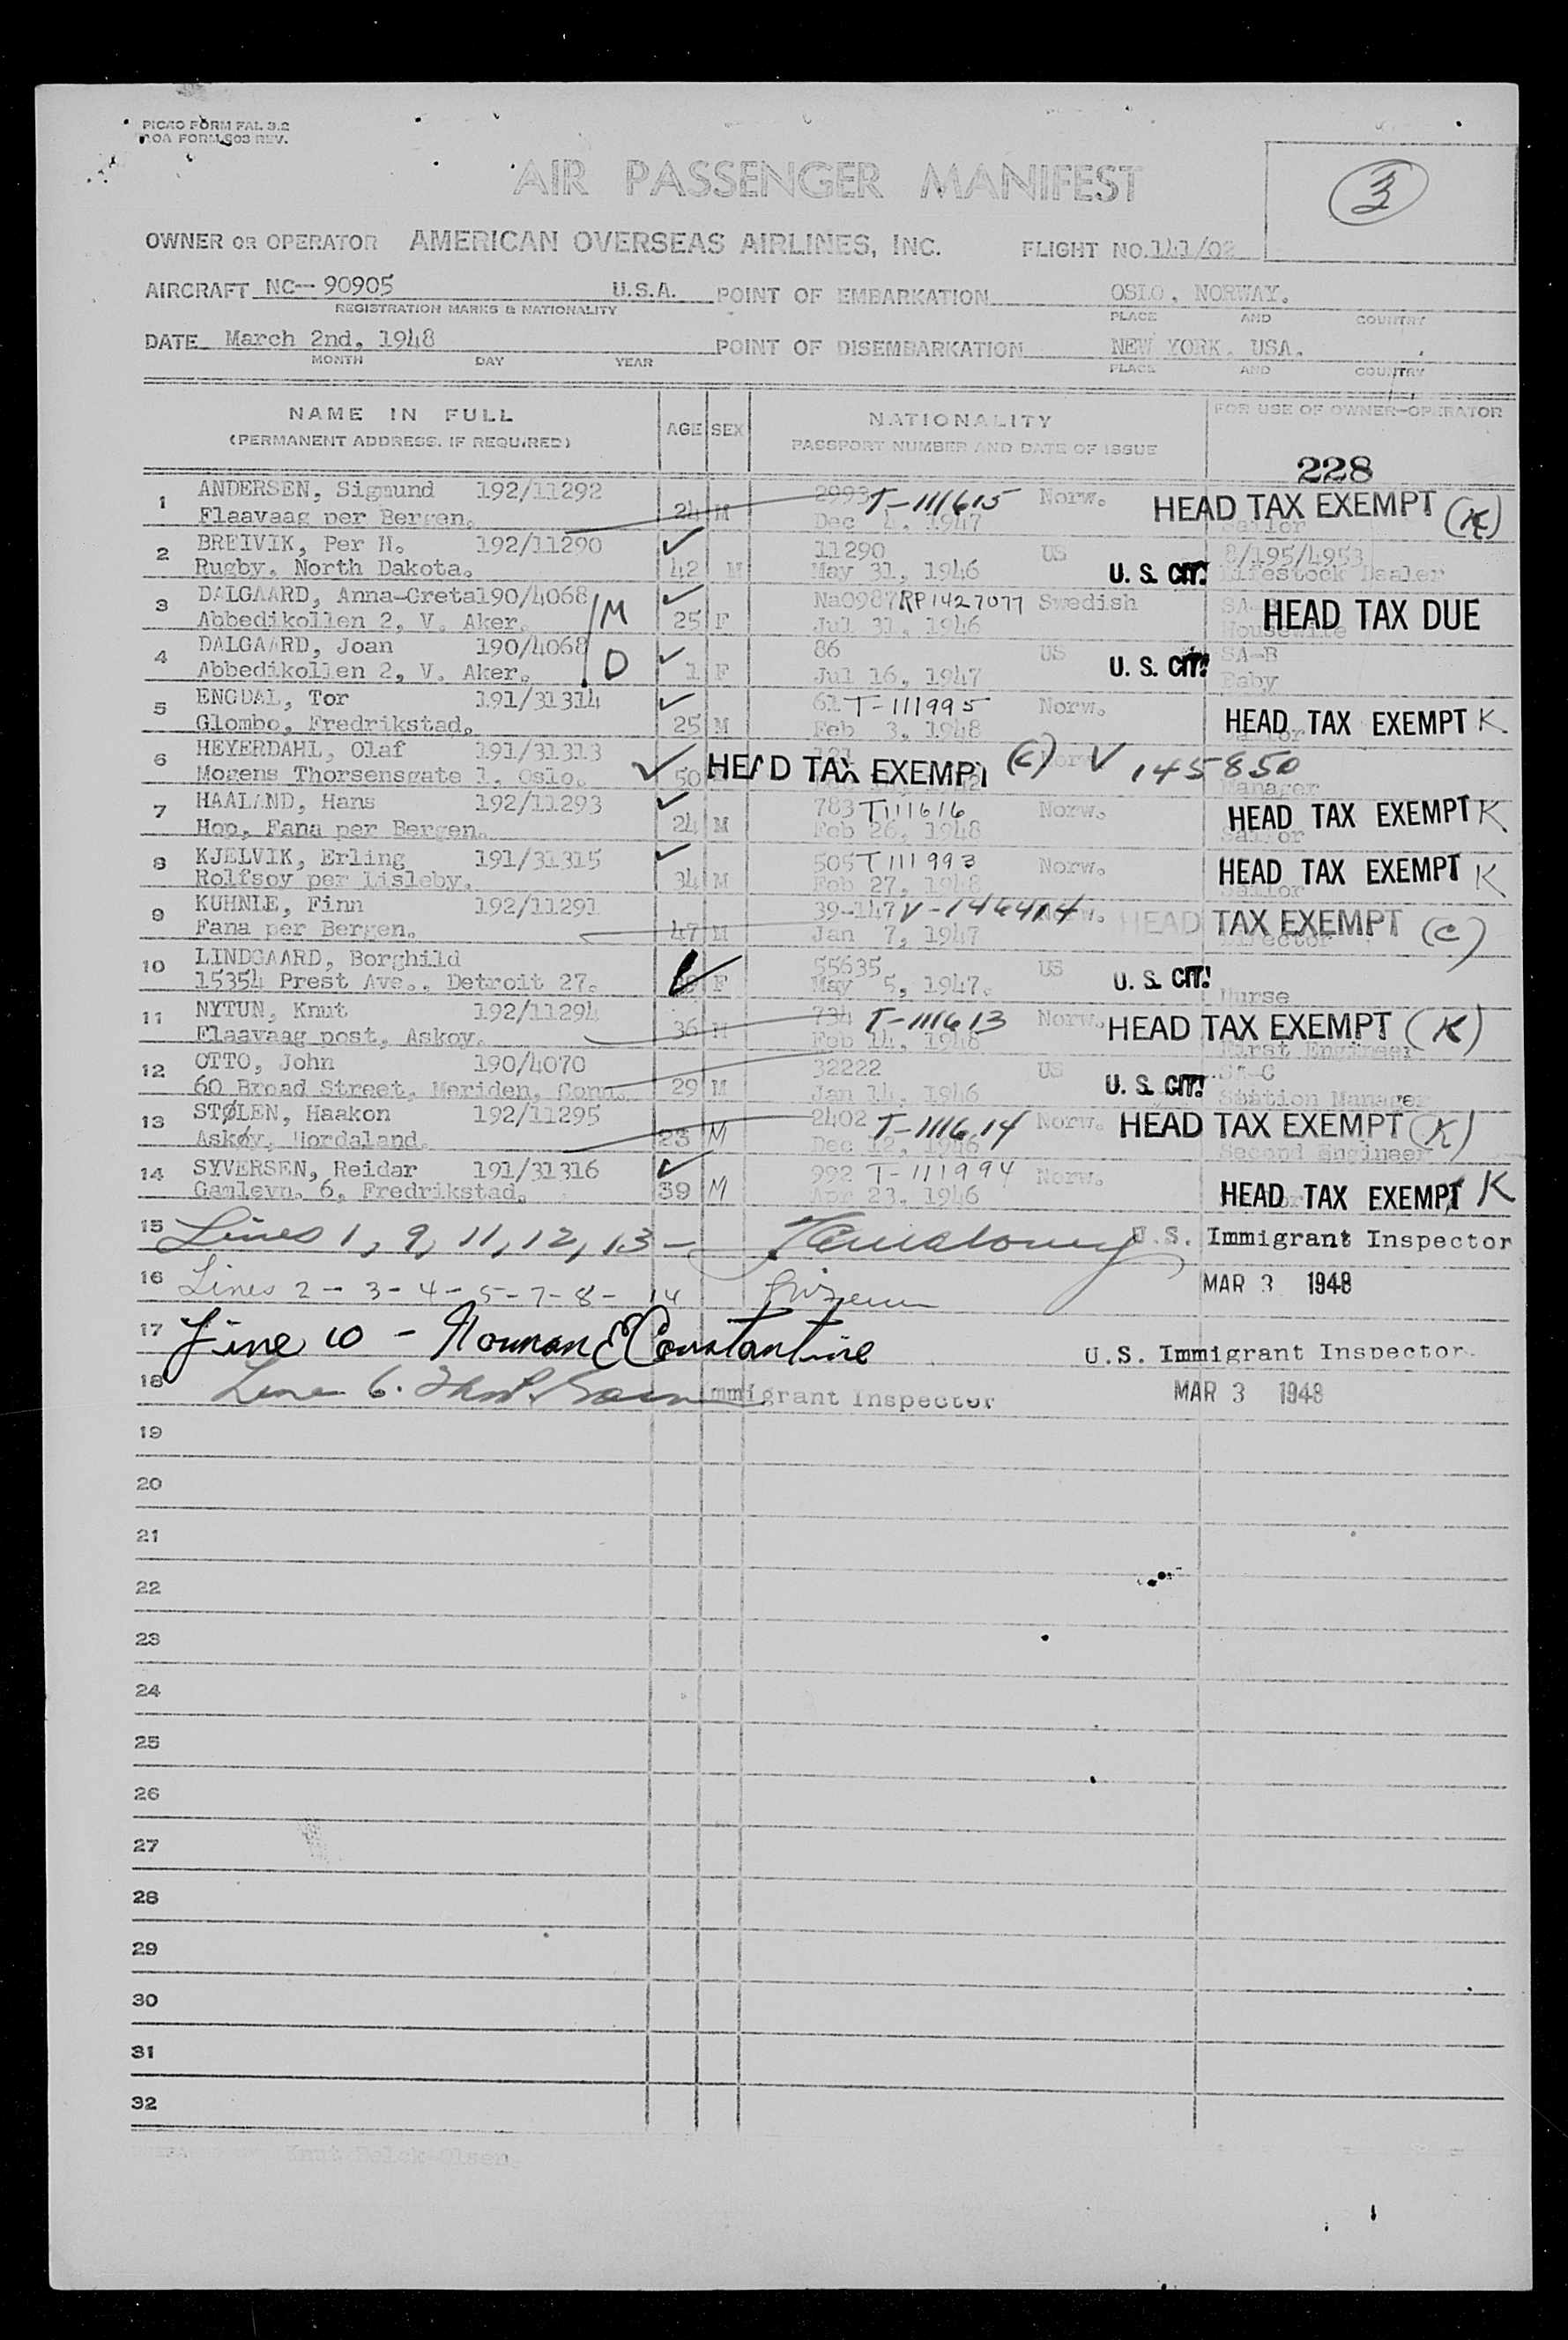 PICAO FORM FAL 3.2
AOA FORM 503 REV.
AIR PASSENGER MANIFEST
3
OWNER OR OPERATOR AMERICAN OVERSEAS AIRLINES, INC. FLIGHT NO. 141/02
AIRCRAFT NC-- 90905 U.S.A. POINT OF EMBARKATION OSLO, NORWAY.
REGISTRATION MARKS & NATIONALITY PLACE AND COUNTRY
DATE March 2nd, 1948 POINT OF DISEMBARKATION NEW YORK, USA.
MONTH DAY YEAR PLACE AND COUNTRY
NAME IN FULL AGE SEX NATIONALITY FOR USE OF OWNER-OPERATOR
(PERMANENT ADDRESS, IF REQUIRED) PASSPORT NUMBER AND DATE OF ISSUE
228
1 ANDERSEN, Sigmund 192/11292 2993 T-111615 Norw. HEAD TAX EXEMPT (K)
Flaavaag per Bergen. 24 M Dec 4, 1947 Sailor
2 BREIVIK, Per H. 192/11290 11290 US 8/195/4953
Rugby, North Dakota. 42 M May 31, 1946 U. S. CIT. Lifestock Dealer
3 DALGAARD, Anna-Greta190/4068 M Na0987 RP1427077 Swedish HEAD TAX DUE
Abbedikollen 2, V. Aker. 25 F Jul 31, 1946 Housewife
4 DALGAARD, Joan 190/4068 D 86 US U. S. CIT. SA-B
Abbedikollen 2, V. Aker. 1 F Jul 16, 1947 Baby
5 ENGDAL, Tor 191/31314 61 T-111995 Norw.
Glombo, Fredrikstad. 25 M Feb 3, 1948 HEAD TAX EXEMPT K
6 HEYERDAHL, Olaf 191/31313 HEAD TAX EXEMPT (C) V 145850
Mogens Thorsensgate 1, Oslo. 50 Manager
7 HAALAND, Hans 192/11293 783 T111616 Norw. HEAD TAX EXEMPT K
Hop, Fana per Bergen. 24 M Feb 26, 1948 Sailor
8 KJELVIK, Erling 191/31315 505 T111993 Norw. HEAD TAX EXEMPT K
Rolfsoy per Lisleby. 34 M Feb 27, 1948 Sailor
9 KUHNLE, Finn 192/11291 39-147 V-146414 Norw. HEAD TAX EXEMPT (C)
Fana per Bergen. 47 M Jan 7, 1947 Director
10 LINDGAARD, Borghild 55635 US
15354 Prest Ave., Detroit 27. F May 5, 1947. U. S. CIT. Nurse
11 NYTUN, Knut 192/11294 734 T-111613 Norw. HEAD TAX EXEMPT (K)
Flaavaag post, Askoy. 36 M Feb 14, 1948 First Engineer
12 OTTO, John 190/4070 32222 US SA-C
60 Broad Street, Meriden, Conn. 29 M Jan 14, 1946 U. S. CIT. Station Manager
13 STØLEN, Haakon 192/11295 2402 T-111614 Norw. HEAD TAX EXEMPT (K)
Askøy, Hordaland. 23 M Dec 12, 1946 Second Engineer
14 SYVERSEN, Reidar 191/31316 992 T-111994 Norw.
Gamlevn. 6, Fredrikstad. 39 M Apr 23, 1946 HEAD TAX EXEMPT K
15 Lines 1, 9, 11, 12, 13 - U.S. Immigrant Inspector
16 Lines 2-3-4-5-7-8-14 MAR 3 1948
17 Line 10 - Norman E Constantine U.S. Immigrant Inspector
18 Line 6. Immigrant Inspector MAR 3 1948
19
20
21
22
23
24
25
26
27
28
29
30
31
32